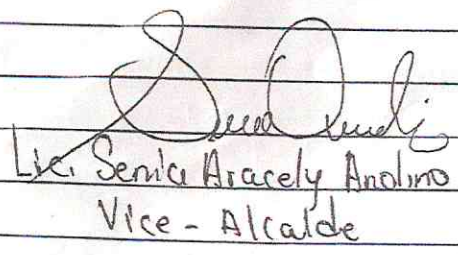 Lic. Senia Aracely Andino
Vice - Alcalde